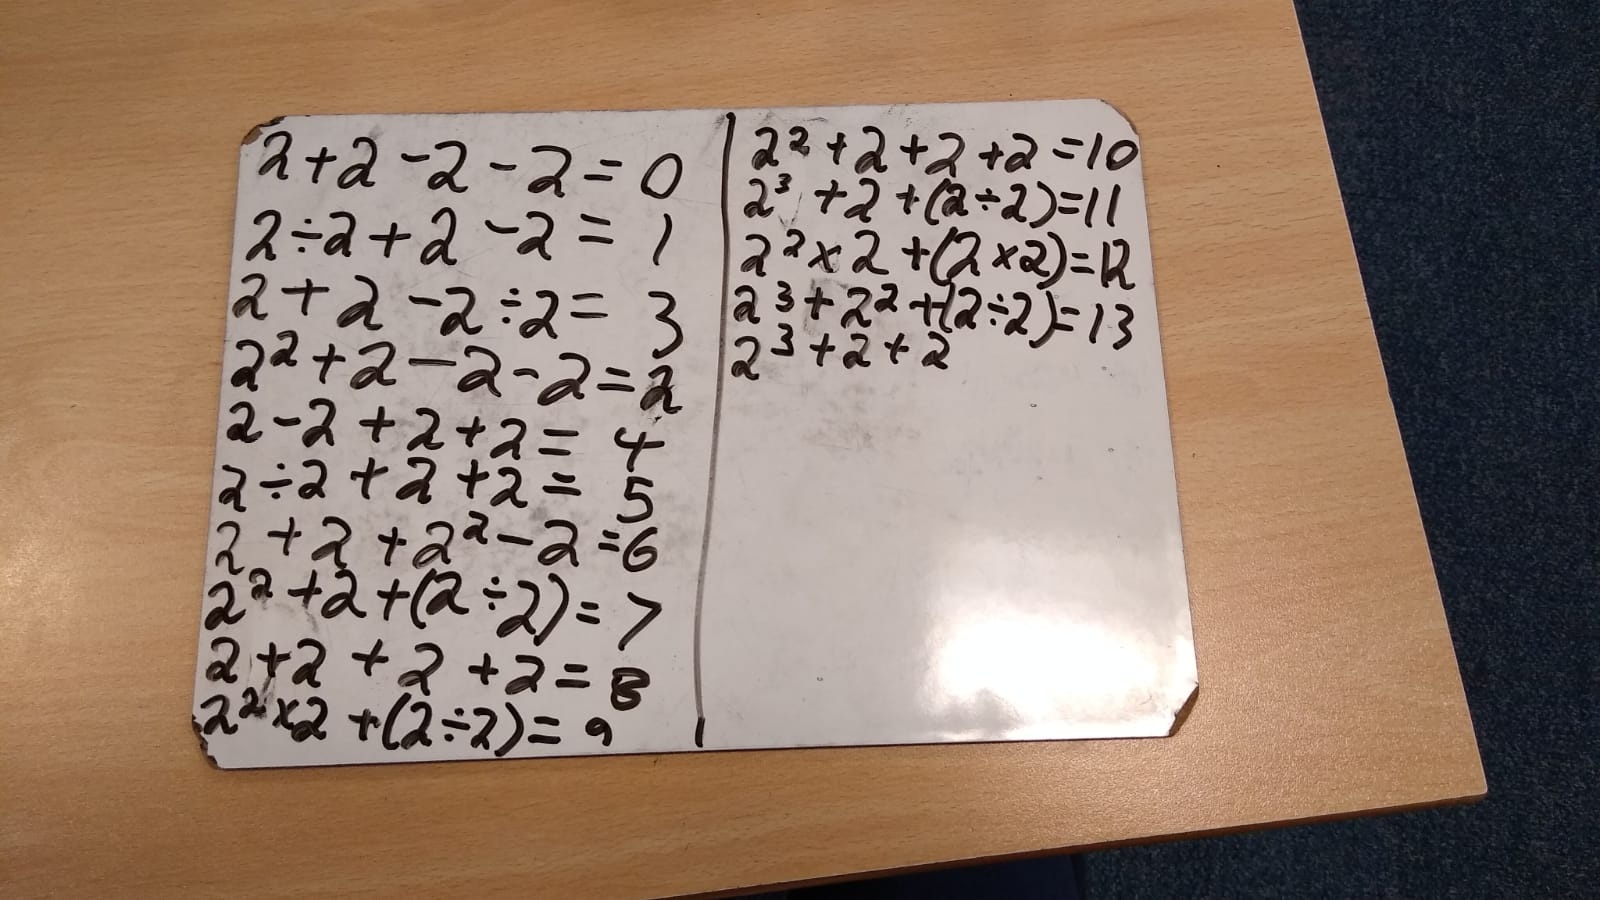 2+2-2-2=0
2÷2+2-2=1
2+2-2÷2=3
2²+2-2-2=2
2-2+2+2=4
2÷2+2+2=5
2+2+2²-2=6
2²+2+(2÷2)=7
2+2+2+2=8
2²×2+(2÷2)=9
2²+2+2+2=10
2³+2+(2÷2)=11
2²×2+(2×2)=12
2³+2²+(2÷2)=13
2³+2+2